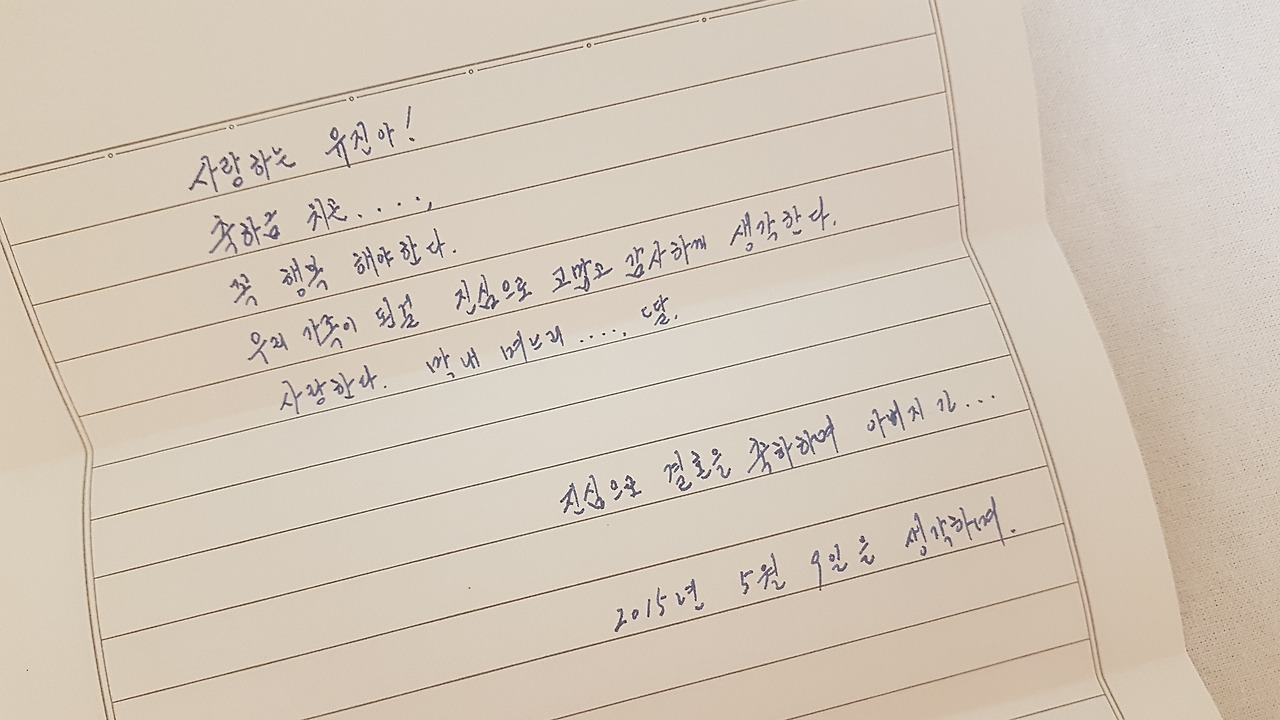 사랑하는 유진아!
축하금 치곤.....,
꼭 행복 해야한다.
우리 가족이 된걸 진심으로 고맙고 감사하게 생각한다.
사랑한다. 막내 며느리 ...., 딸.
진심으로 결혼을 축하하며 아버지가...
2015년 5월 9일을 생각하며.